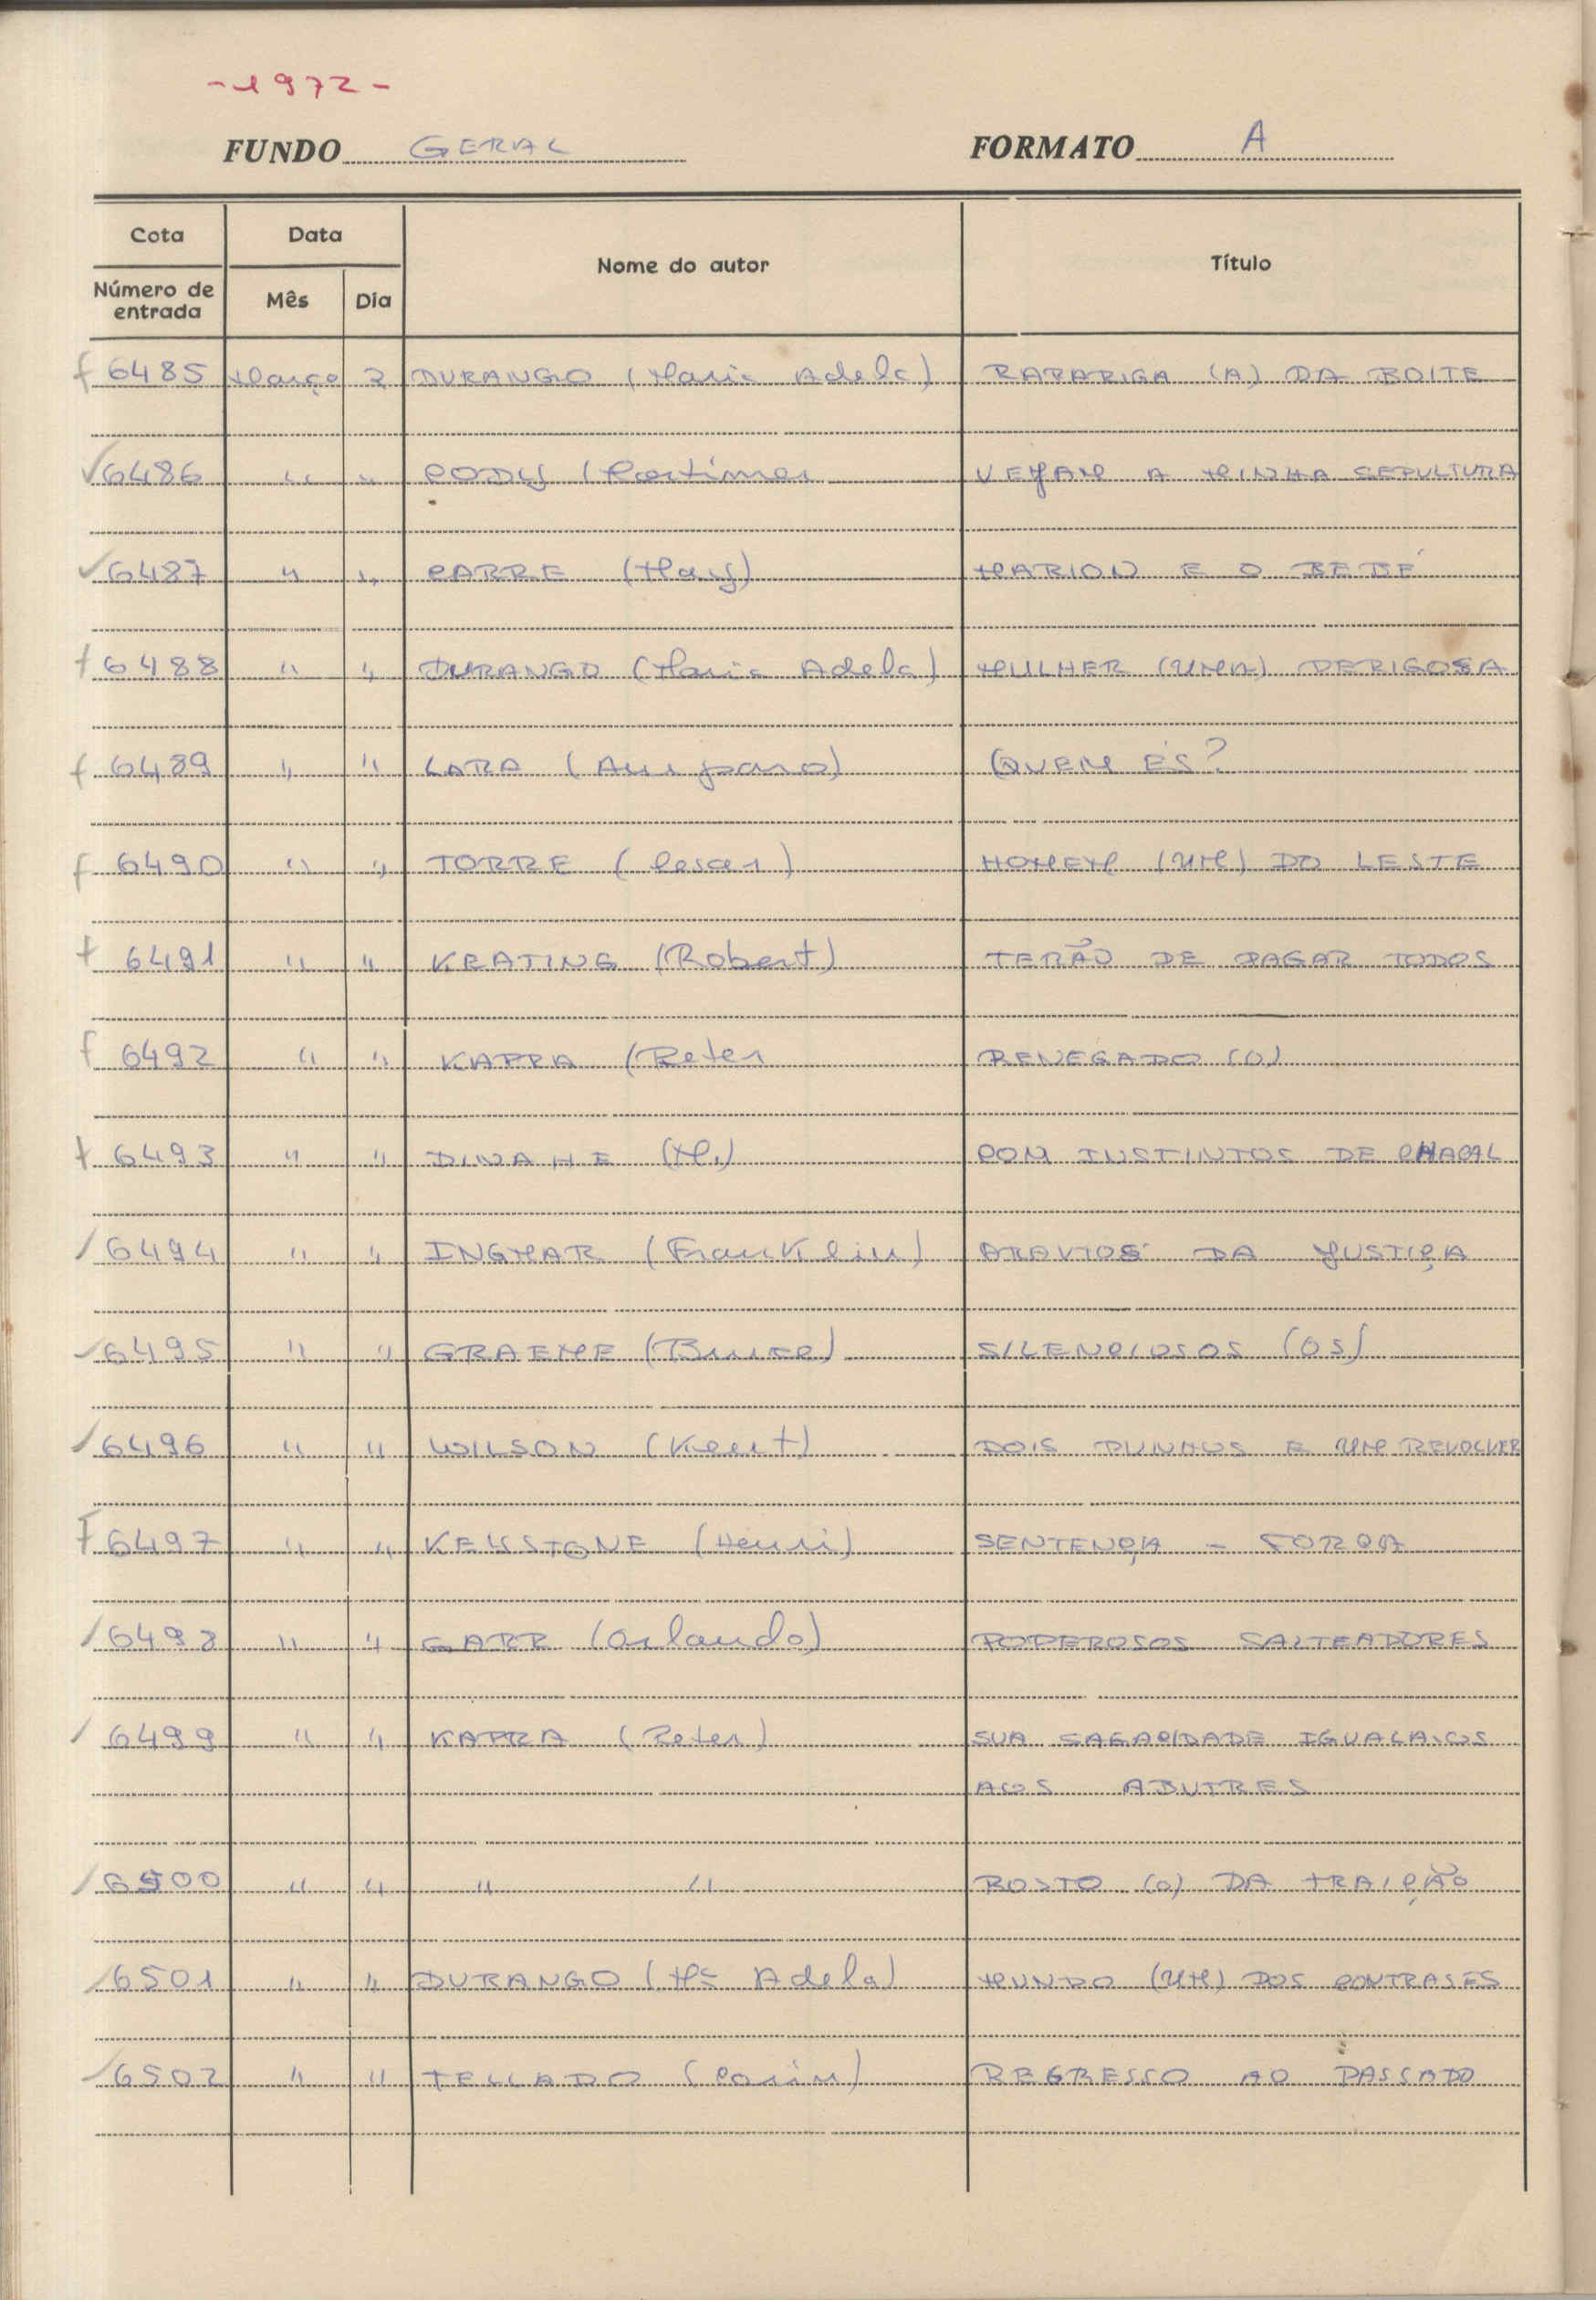 -1972-
FUNDO GERAL FORMATO A
Cota Data Nome do autor Título
Número de entrada Mês Dia
6485 Março 2 DURANGO (Maria Adela) RAPARIGA (A) DA BOITE
6486 " " CODY (Mortimer VEJAM A MINHA SEPULTURA
6487 " " CARRE (May) MARION E O BEBÉ
6488 " " DURANGO (Maria Adela) MULHER (UMA) PERIGOSA
6489 " " LARA (Amparo) QUEM ÉS?
6490 " " TORRE (Cesar) HOMEM (UM) DO LESTE
6491 " " KEATING (Robert) TERÃO DE PAGAR TODOS
6492 " " KAPRA (Peter RENEGADO (O)
6493 " " DINAHE (M.) COM INSTINTOS DE CHACAL
6494 " " INGMAR (Franklin) DA JUSTIÇA
6495 " " GRAEME (Bruce) SILENCIOSOS (OS)
6496 " " WILSON (Kent) DOIS PUNHOS E UM REVOLVER
6497 " " KEYSTONE (Henri) SENTENÇA - FORCA
6498 " " GARR (Orlando) PODEROSOS SALTEADORES
6499 " " KAPRA (Peter) SUA SAGACIDADE IGUALA-OS
AOS ABUTRES
6500 " " " " ROSTO (O) DA TRAIÇÃO
6501 " " DURANGO (Mª Adela) MUNDO (UM) DOS CONTRASES
6502 " " TELLADO (Corin) REGRESSO AO PASSADO